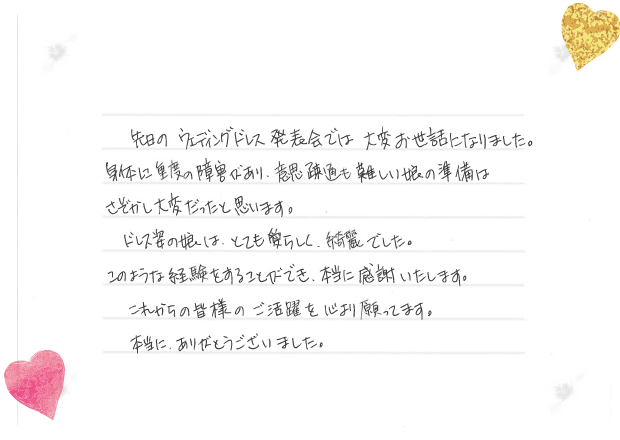 先日の ウェディングドレス 発表会では 大変お世話になりました。
身体に重度の障害があり、意思疎通も難しい娘の準備は
さぞかし大変だったと思います。
ドレス姿の娘は、とても愛らしく、綺麗でした。
このような経験をすることができ、本当に感謝いたします。
これからの皆様のご活躍を心より願ってます。
本当に、ありがとうございました。